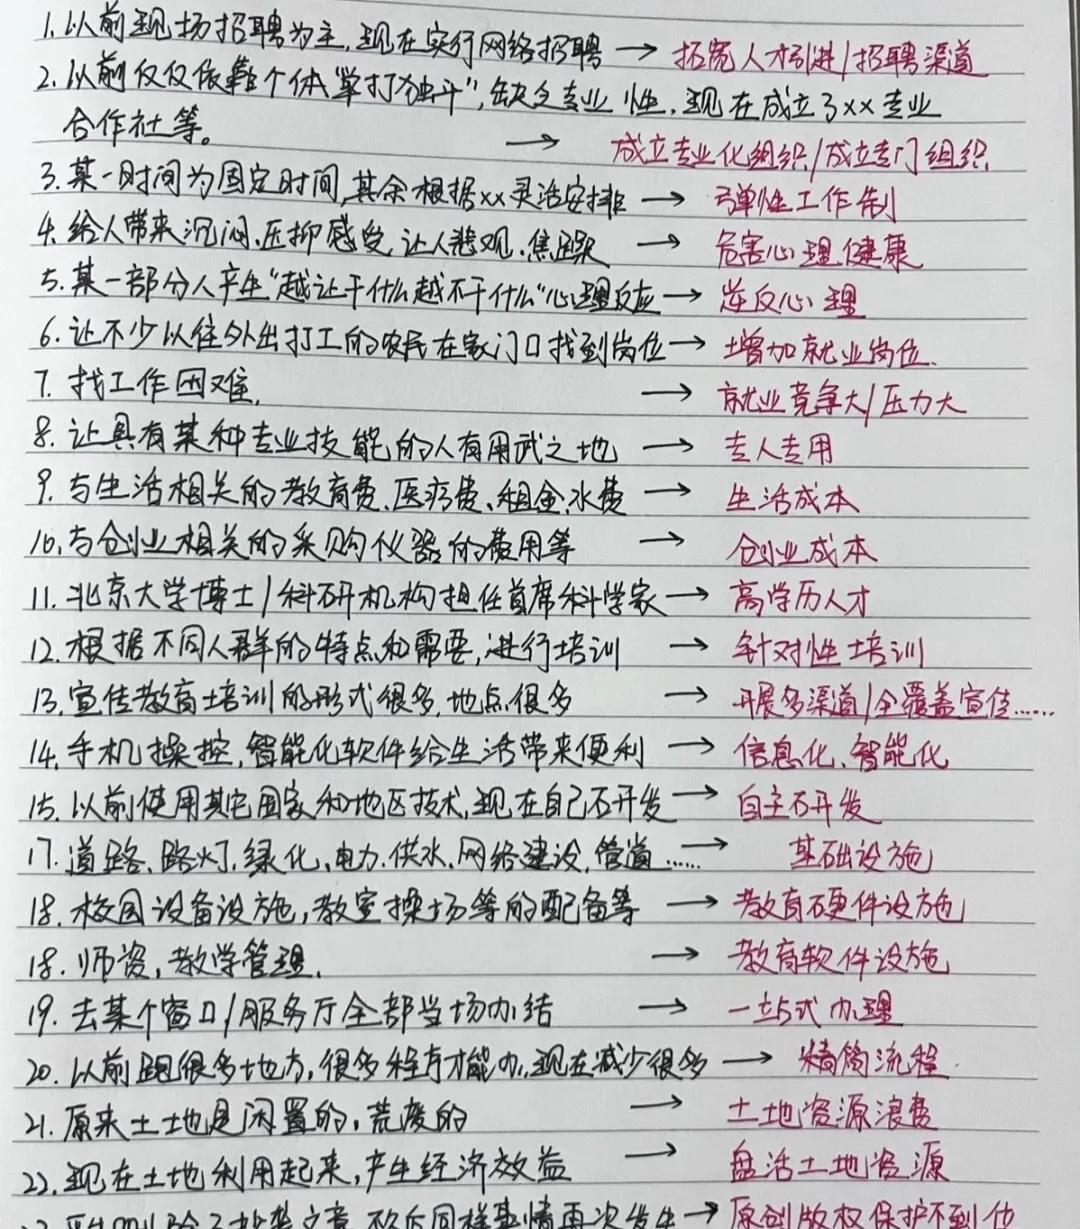 1. 以前现场招聘为主，现在实行网络招聘 → 拓宽人才引进/招聘渠道
2. 以前仅仅依靠个体"单打独斗"，缺乏专业性，现在成立了xx专业
合作社等。 → 成立专业化组织/成立专门组织
3. 某一时间为固定时间，其余根据xx灵活安排 → 弹性工作制
4. 给人带来沉闷、压抑感受，让人悲观、焦躁 → 危害心理健康
5. 某一部分人产生"越让干什么越不干什么"心理反应 → 逆反心理
6. 让不少以往外出打工的农民在家门口找到岗位 → 增加就业岗位.
7. 找工作困难. → 就业竞争大/压力大
8. 让具有某种专业技能的人有用武之地 → 专人专用
9. 与生活相关的教育费、医疗费、租金、水费 → 生活成本
10. 与创业相关的采购仪器的费用等 → 创业成本
11. 北京大学博士/科研机构担任首席科学家 → 高学历人才
12. 根据不同人群的特点和需要，进行培训 → 针对性培训
13. 宣传教育培训的形式很多，地点很多 → 开展多渠道/全覆盖宣传……
14. 手机操控，智能化软件给生活带来便利 → 信息化、智能化
15. 以前使用其它国家和地区技术，现在自己研开发 → 自主研开发
17. 道路、路灯、绿化、电力、供水、网络建设、管道…… → 基础设施
18. 校园设备设施，教室操场等的配备等 → 教育硬件设施
18. 师资，教学管理. → 教育软件设施
19. 去某个窗口/服务厅全部当场办结 → 一站式办理
20. 以前跑很多地方，很多程序才能办，现在减少很多 → 精简流程.
21. 原来土地是闲置的，荒废的 → 土地资源浪费
22. 现在土地利用起来，产生经济效益 → 盘活土地资源
同样事情再次发生 → 原创版权保护不到位